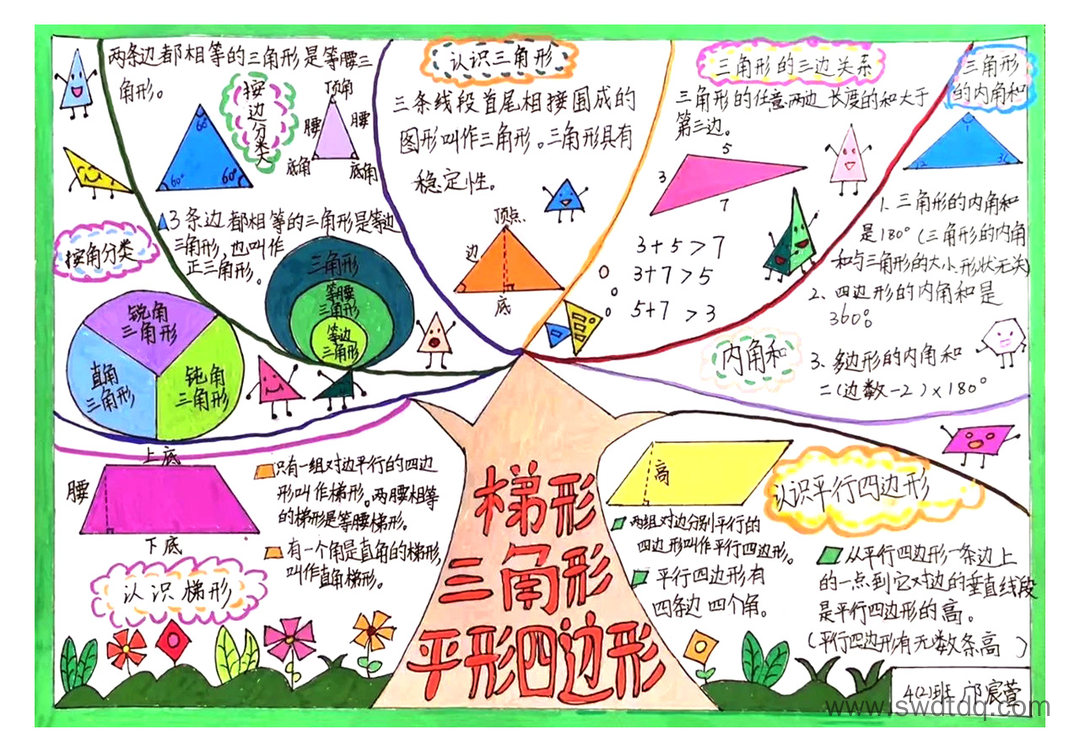 两条边都相等的三角形是等腰三
角形。
按边分类
60°
60°
60°
顶角
腰
腰
底角
底角
3条边都相等的三角形是等边
三角形，也叫作
正三角形。
三角形
等腰
三角形
等边
三角形
按角分类
锐角
三角形
直角
三角形
钝角
三角形
认识三角形
三条线段首尾相接围成的
图形叫作三角形。三角形具有
稳定性。
顶点
边
底
三角形的三边关系
三角形的任意两边长度的和大于
第三边。
5
3
7
3+5>7
3+7>5
5+7>3
三角形
的内角和
1
2
3
1. 三角形的内角和
是180°(三角形的内角
和与三角形的大小形状无关)
2. 四边形的内角和是
360°
3. 多边形的内角和
=(边数-2)×180°
内角和
上底
腰
下底
只有一组对边平行的四边
形叫作梯形。两腰相等
的梯形是等腰梯形。
有一个角是直角的梯形，
叫作直角梯形。
认识梯形
梯形
三角形
平形四边形
高
认识平行四边形
两组对边分别平行的
四边形叫作平行四边形。
平行四边形有
四条边四个角。
从平行四边形一条边上
的一点到它对边的垂直线段
是平行四边形的高。
(平行四边形有无数条高)
4(2)班 邝宸萱
www.iswdtdq.com